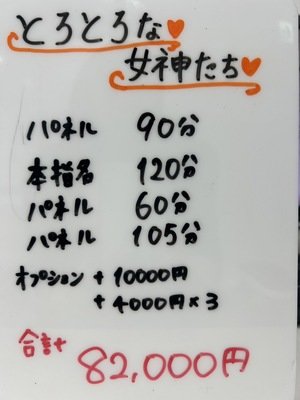 とろとろな♥
女神たち♥
パネル 90分
本指名 120分
パネル 60分
パネル 105分
オプション + 10000円
+ 4000円×3
合計 82,000円